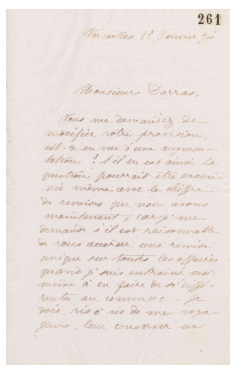 261
Versailles 22 Janvier
Monsieur Darras,
Vous me demandez de
modifier votre provision,
est-ce en vue d'une augmen-
tation ? s'il en est ainsi la
question pourrait être exami-
née même avec le chiffre
de remises que nous avons
maintenant, car je me
demande s'il est raisonnable
de vous accorder une remise
unique sur toutes les affaires
quand je suis entraîné moi-
même à en faire de si diffé-
rentes au commerce. Je
dois vis à vis de mes voya-
geurs, leur conserver un